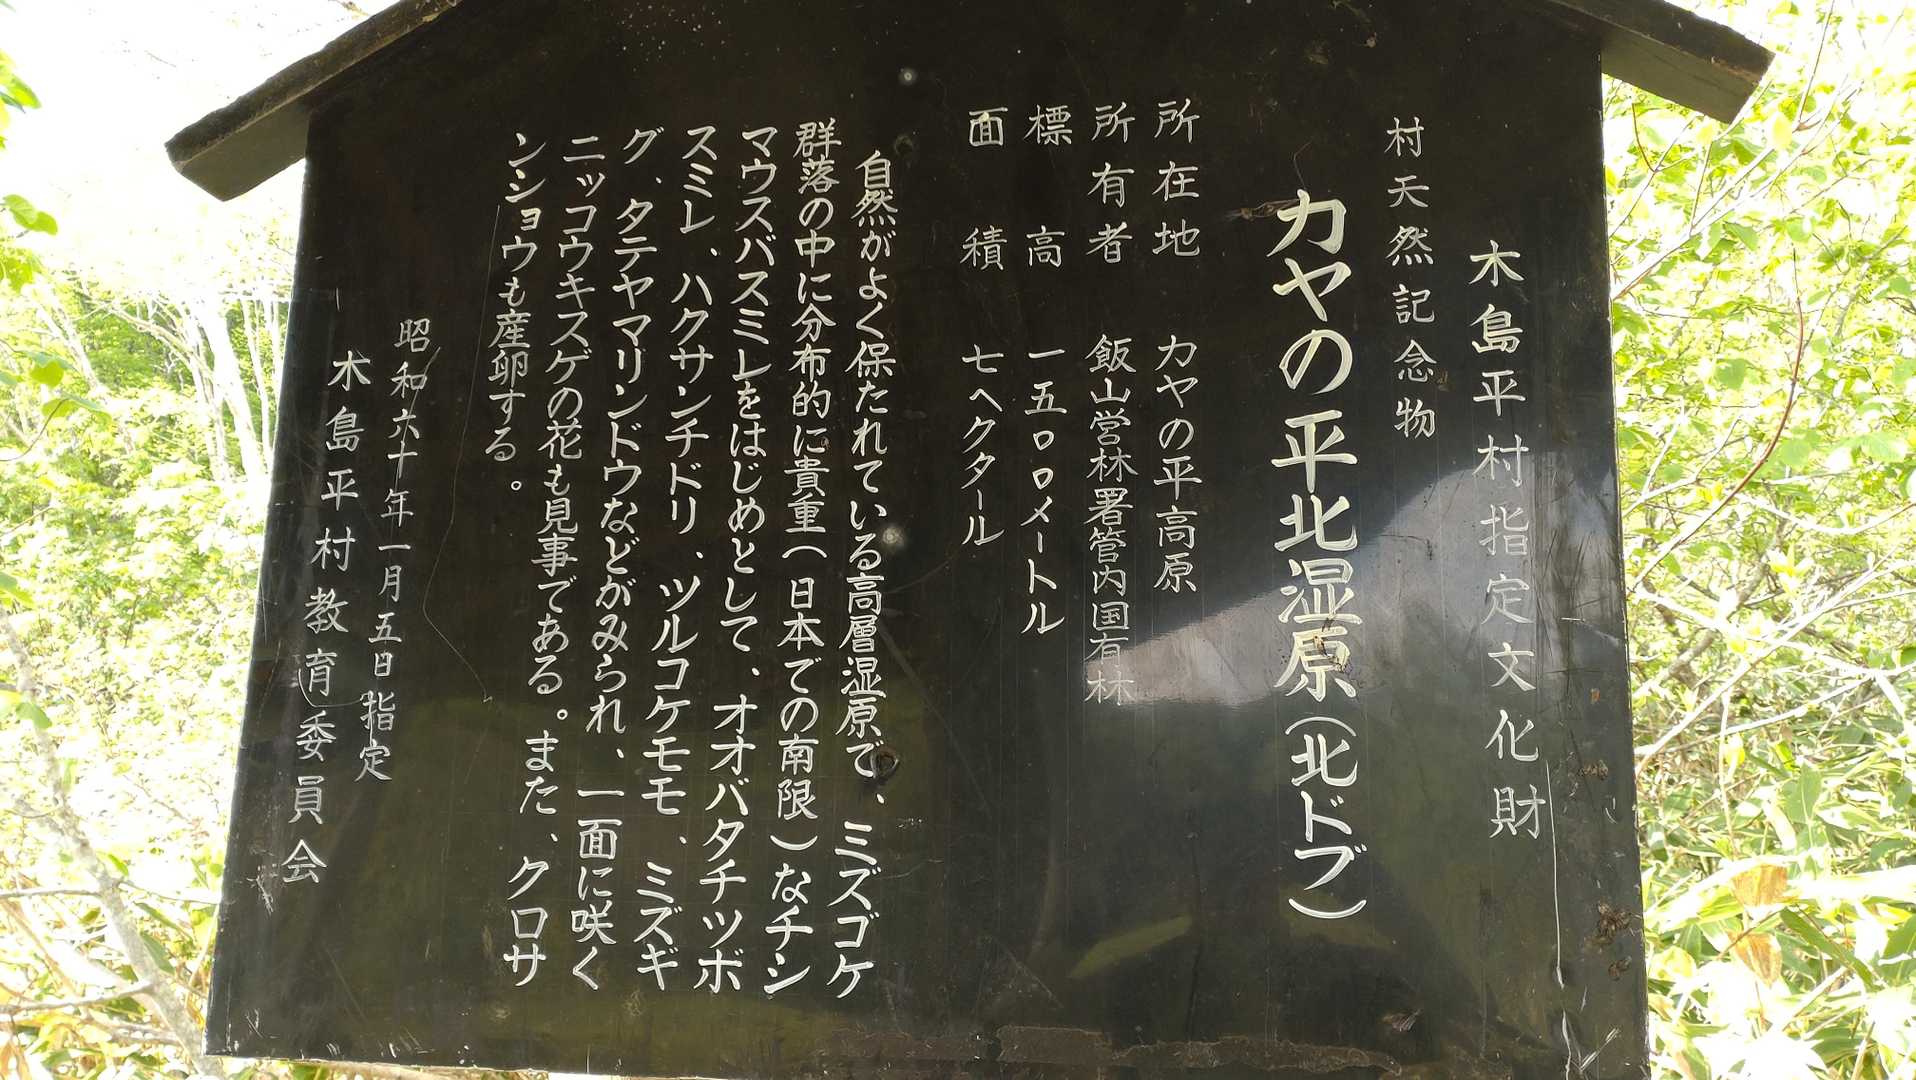 木島平村指定文化財
村天然記念物
カヤの平北湿原(北ドブ)
所在地 カヤの平高原
所有者 飯山営林署管内国有林
標高 一五〇〇メートル
面積 七ヘクタール
自然がよく保たれている高層湿原で、ミズゴケ
群落の中に分布的に貴重(日本での南限)なチシ
マウスバスミレをはじめとして、オオバタチツボ
スミレ、ハクサンチドリ、ツルコケモモ、ミズギ
グ、タテヤマリンドウなどがみられ、一面に咲く
ニッコウキスゲの花も見事である。また、クロサ
ンショウも産卵する。
昭和六十年一月五日指定
木島平村教育委員会